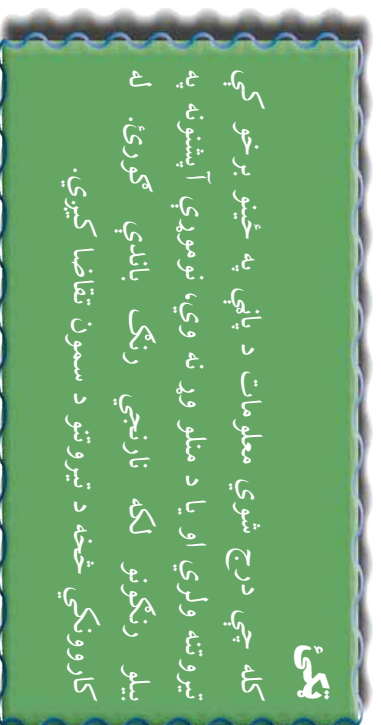 ټکیٔ
کله چي درج شوي معلومات د پاڼي په ځینو برخو کي
تیروتنه ولري او یا د منلو وړ نه وي، نوموړي آپشنونه په
بیلو رنګونو لکه نارنجي رنګ باندي ګورئ. له
کاروونکي څخه د تیروتنو د سمون تقاضا کیږي.